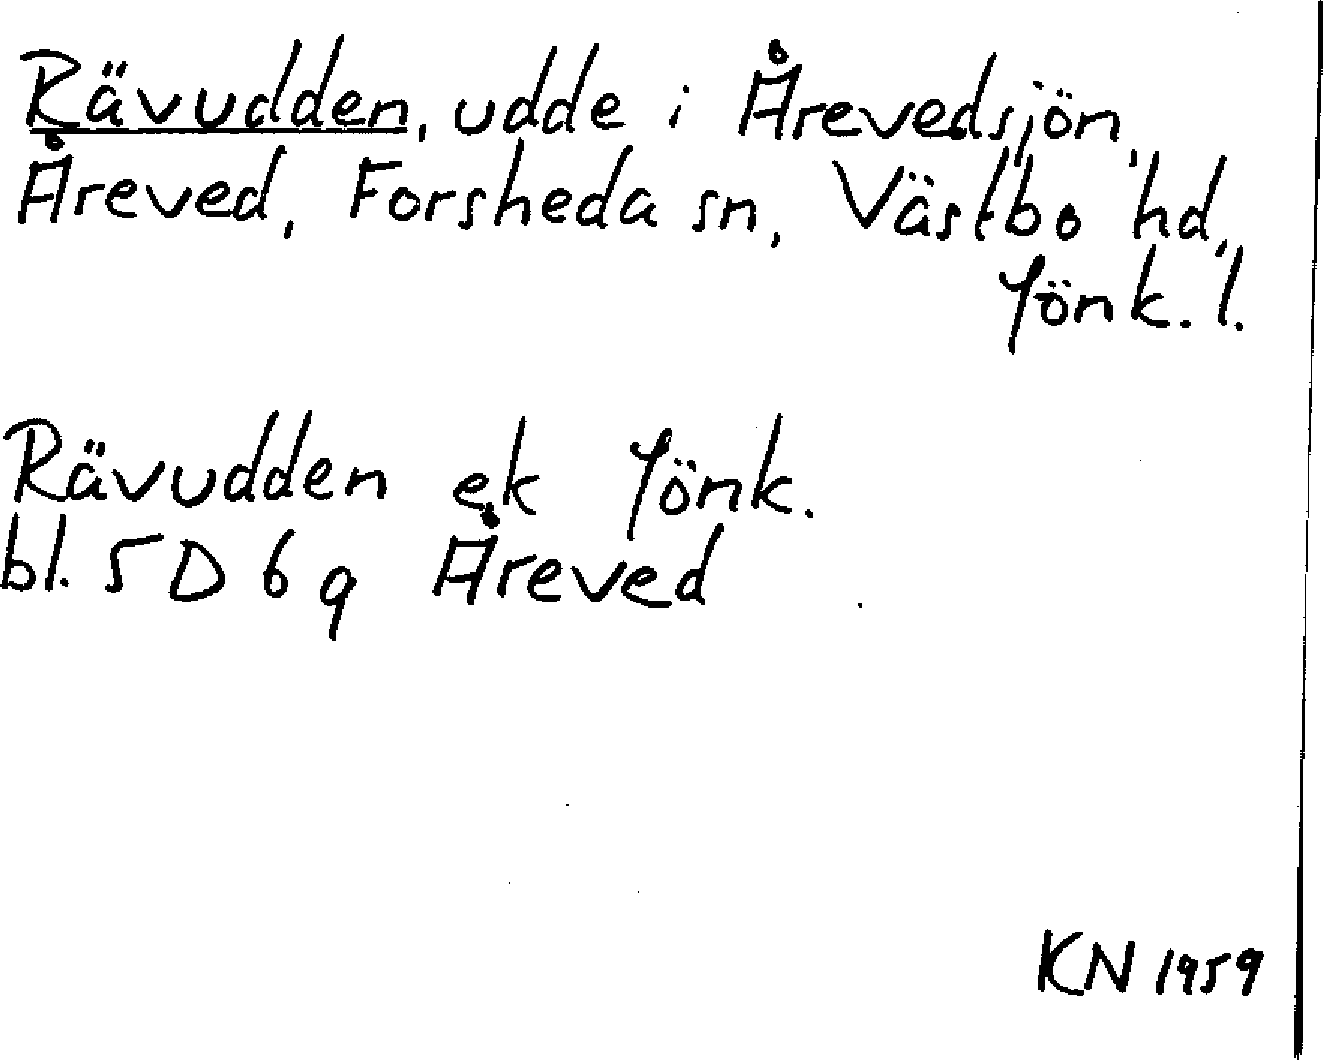 Rävudden, udde i Årevedsjön,
Åreved, Forsheda sn, Västbo hd,
Jönk. l.
Rävudden ek Jönk.
bl. 5D 6 q Åreved
KN 1959